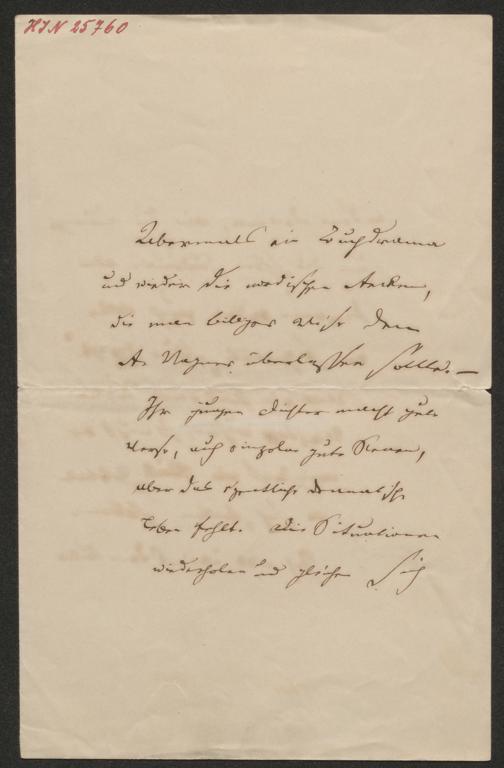 HIN 25760
Abermals ein Buchdrama
und wieder die nordischen Recken,
die man billiger Weise dem
R. Wagner überlassen sollte. —
Ihr junger Dichter macht gute
Verse, auch einzelne gute Scenen,
aber das eigentliche dramatische
Leben fehlt. Die Situationen
wiederholen und gleichen sich